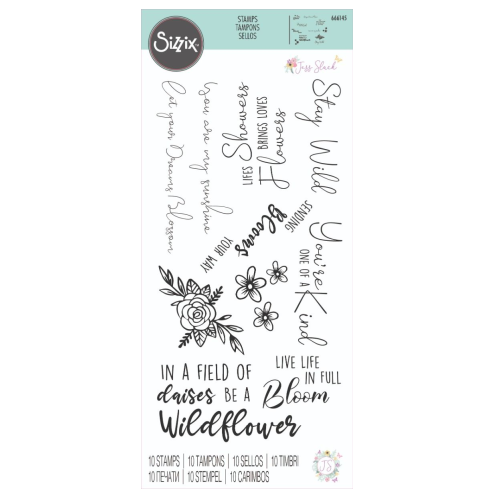 Sizzix
STAMPS
TAMPONS
SELLOS
666145
Jess Slack
Let your Dreams Blossom
You are my sunshine
LIFES Showers
BRINGS LOVES
Flowers
Stay Wild
SENDING
Blooms
YOUR WAY
You're
ONE OF A
Kind
IN A FIELD OF
daises BE A
Wildflower
LIVE LIFE
IN FULL
Bloom
JS
10 STAMPS | 10 TAMPONS | 10 SELLOS | 10 TIMBRI
10 ПЕЧАТИ | 10 STEMPEL | 10 CARIMBOS